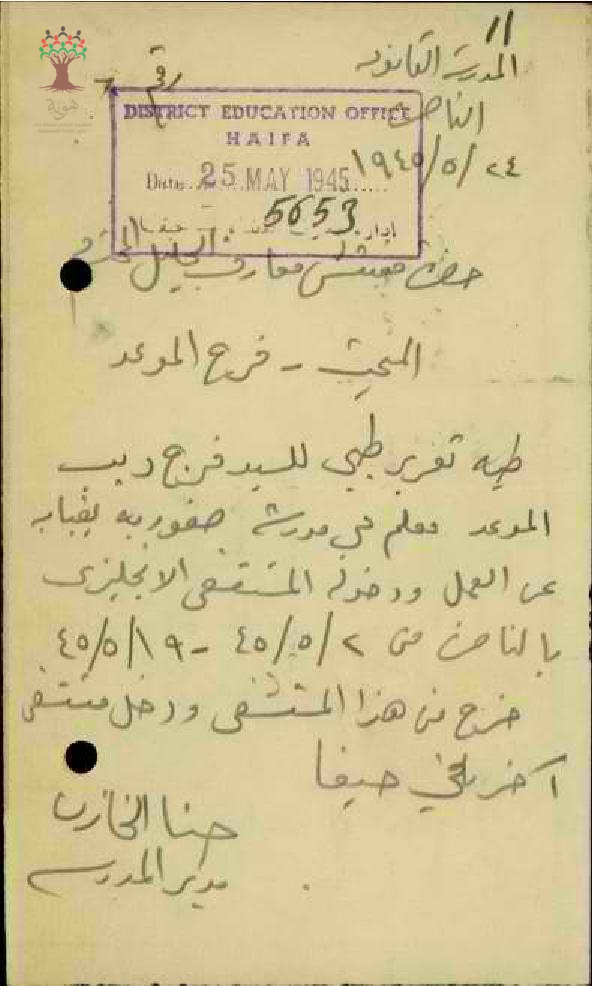 ١١
المدرسة الثانوية
رقم
الناصرة
٢٤/٥/١٩٤٥
DISTRICT EDUCATION OFFICE
HAIFA
Date 25 MAY 1945
5653
حضرة مفتش معارف الجليل المحترم
المبحث - فرج الموعد
طيه تقرير طبي للسيد فرج ديب
الموعد معلم في مدرسة صفوريه بغيابه
عن العمل ودخوله المستشفى الانجليزي
بالناصرة من ٢/٥/٤٥ - ١٩/٥/٤٥
خرج من هذا المستشفى ودخل مستشفى
آخر في حيفا
حنا الخازن
مدير المدرسه
هوية